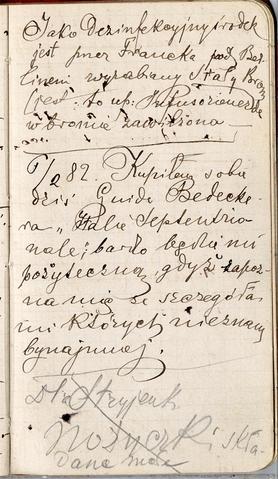 Jako Dezinfekcyjny środek
jest przez Francka pod Ber
linem wyrabiany Stały Brom
(jest to np. Infusorienerde
w bromie zawilżona
6/2 82. Kupiłem sobie
dziś Guida Bedecke
ra „Italie Septentrio
nale; bardzo będzie mi
pożyteczną, gdyż zapoz
na mię ze szczegóła
mi których nieznam
bynajmniej.
Dla Stryjenki
Nożyczki skła
dane małe